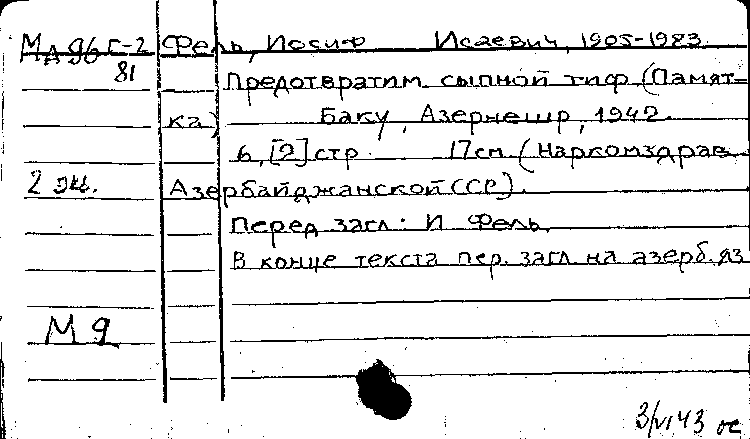 МД 96 Г-2 Фель, Иосиф Исаевич, 1905-1983.
81 Предотвратим сыпной тиф (Памят-
ка) Баку, Азернешр, 1942.
6, [2] стр. 17см. (Наркомздрав
2 экз. Азербайджанской ССР).
Перед загл.: И Фель.
В конце текста пер. загл. на азерб. яз
М 9
3/VI 43 ос